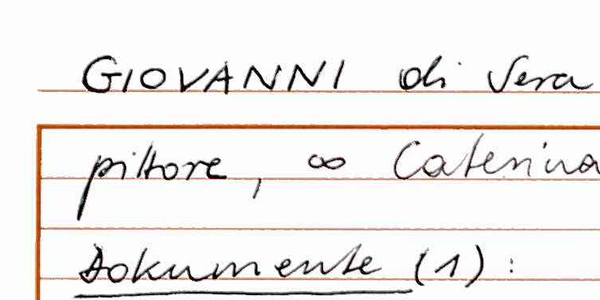 GIOVANNI di Sera
pittore, ∞ Caterina
Dokumente (1):